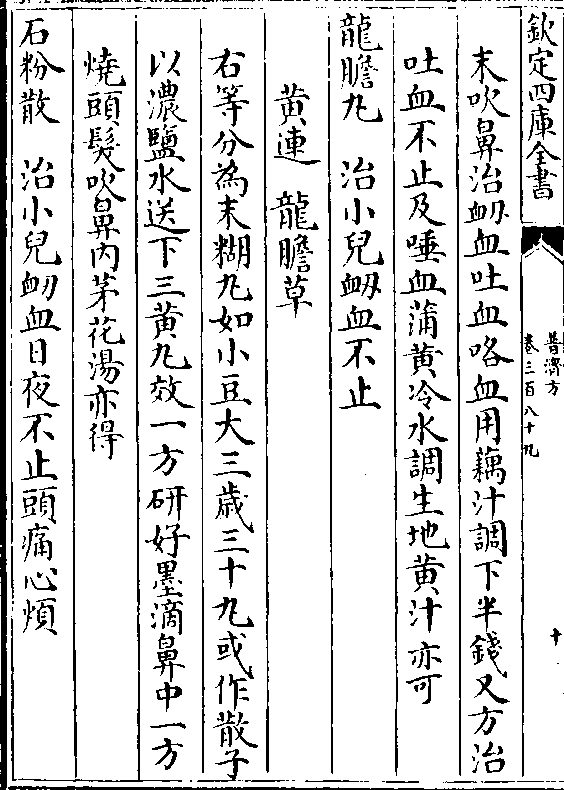 欽定四庫全書
普濟方
卷三百八十九
十
末吹鼻治衂血吐血咯血用藕汁調下半錢又方治
吐血不止及唾血蒲黄冷水調生地黄汁亦可
龍膽丸　治小兒衂血不止
黄連　龍膽草
右等分為末糊丸如小豆大三歲三十丸或作散子
以濃鹽水送下三黄丸效一方研好墨滴鼻中一方
燒頭髮吹鼻内茅花湯亦得
石粉散　治小兒衂血日夜不止頭痛心煩